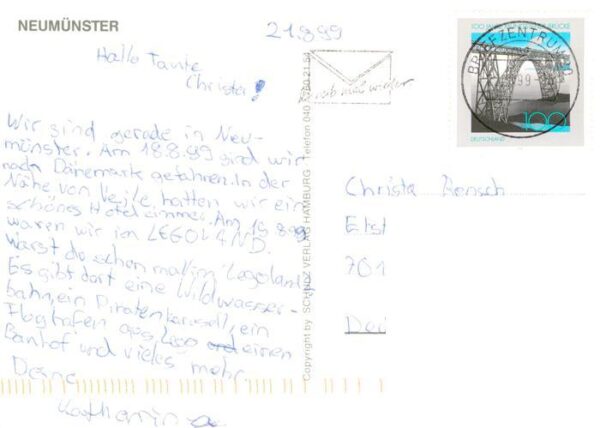 NEUMÜNSTER
21.8.99
Hallo Tante
Christa!
Wir sind gerade in Neu-
münster. Am 18.8.99 sind wir
nach Dänemark gefahren. In der
Nähe von Vejle hatten wir ein
schönes Hotelzimmer. Am 19.8.99
waren wir im LEGOLAND.
Warst du schon mal im Legoland?
Es gibt dort eine Wildwasser-
bahn, ein Piratenkarusell, ein
Flughafen aus Lego einen
Banhof und vieles mehr.
Deine
Katharina
Copyright by SCHÖNING VERLAG HAMBURG Telefon 040
Schreib mal wieder
100
DEUTSCHLAND
BRIEFZENTRUM
Christa
701